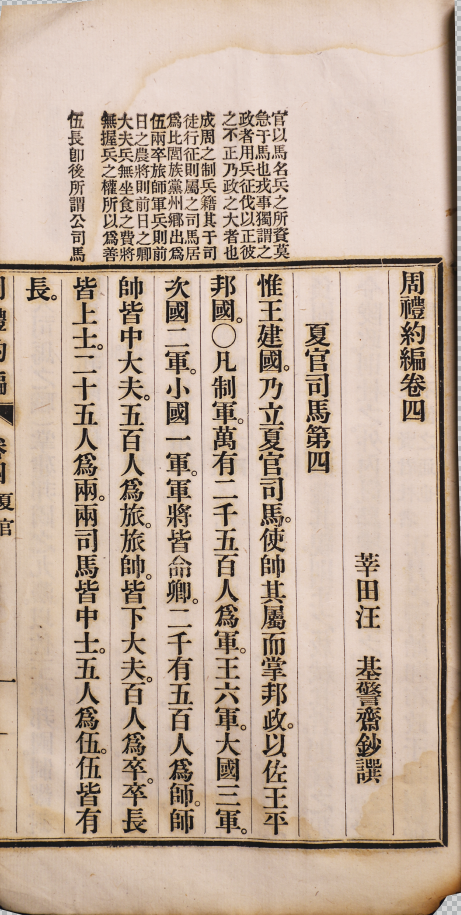 官以馬名兵之所資莫
急于馬也戎事獨謂之
政者用兵征伐以正彼
之不正乃政之大者也
成周之制兵籍其于司
徒行征則屬之司馬居
為比閭族黨州鄉出為
伍兩卒旅師軍兵則前
日之農將則前日之卿
大夫兵無坐食之費將
無握兵之權所以為善
伍長卽後所謂公司馬
周禮約編卷四
莘田汪 基警齋鈔譔
夏官司馬第四
惟王建國。乃立夏官司馬。使帥其屬而掌邦政。以佐王平
邦國。〇凡制軍。萬有二千五百人為軍。王六軍。大國三軍。
次國二軍。小國一軍。軍將皆命卿。二千有五百人為師。師
帥皆中大夫。五百人為旅。旅帥皆下大夫。百人為卒。卒長
皆上士。二十五人為兩。兩司馬皆中士。五人為伍。伍皆有
長。
周禮約編 卷四 夏官 一